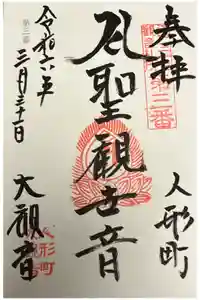 奉拝
第三番
人形町
聖観世音
大観音
令和六年
三月三十一日
第三番